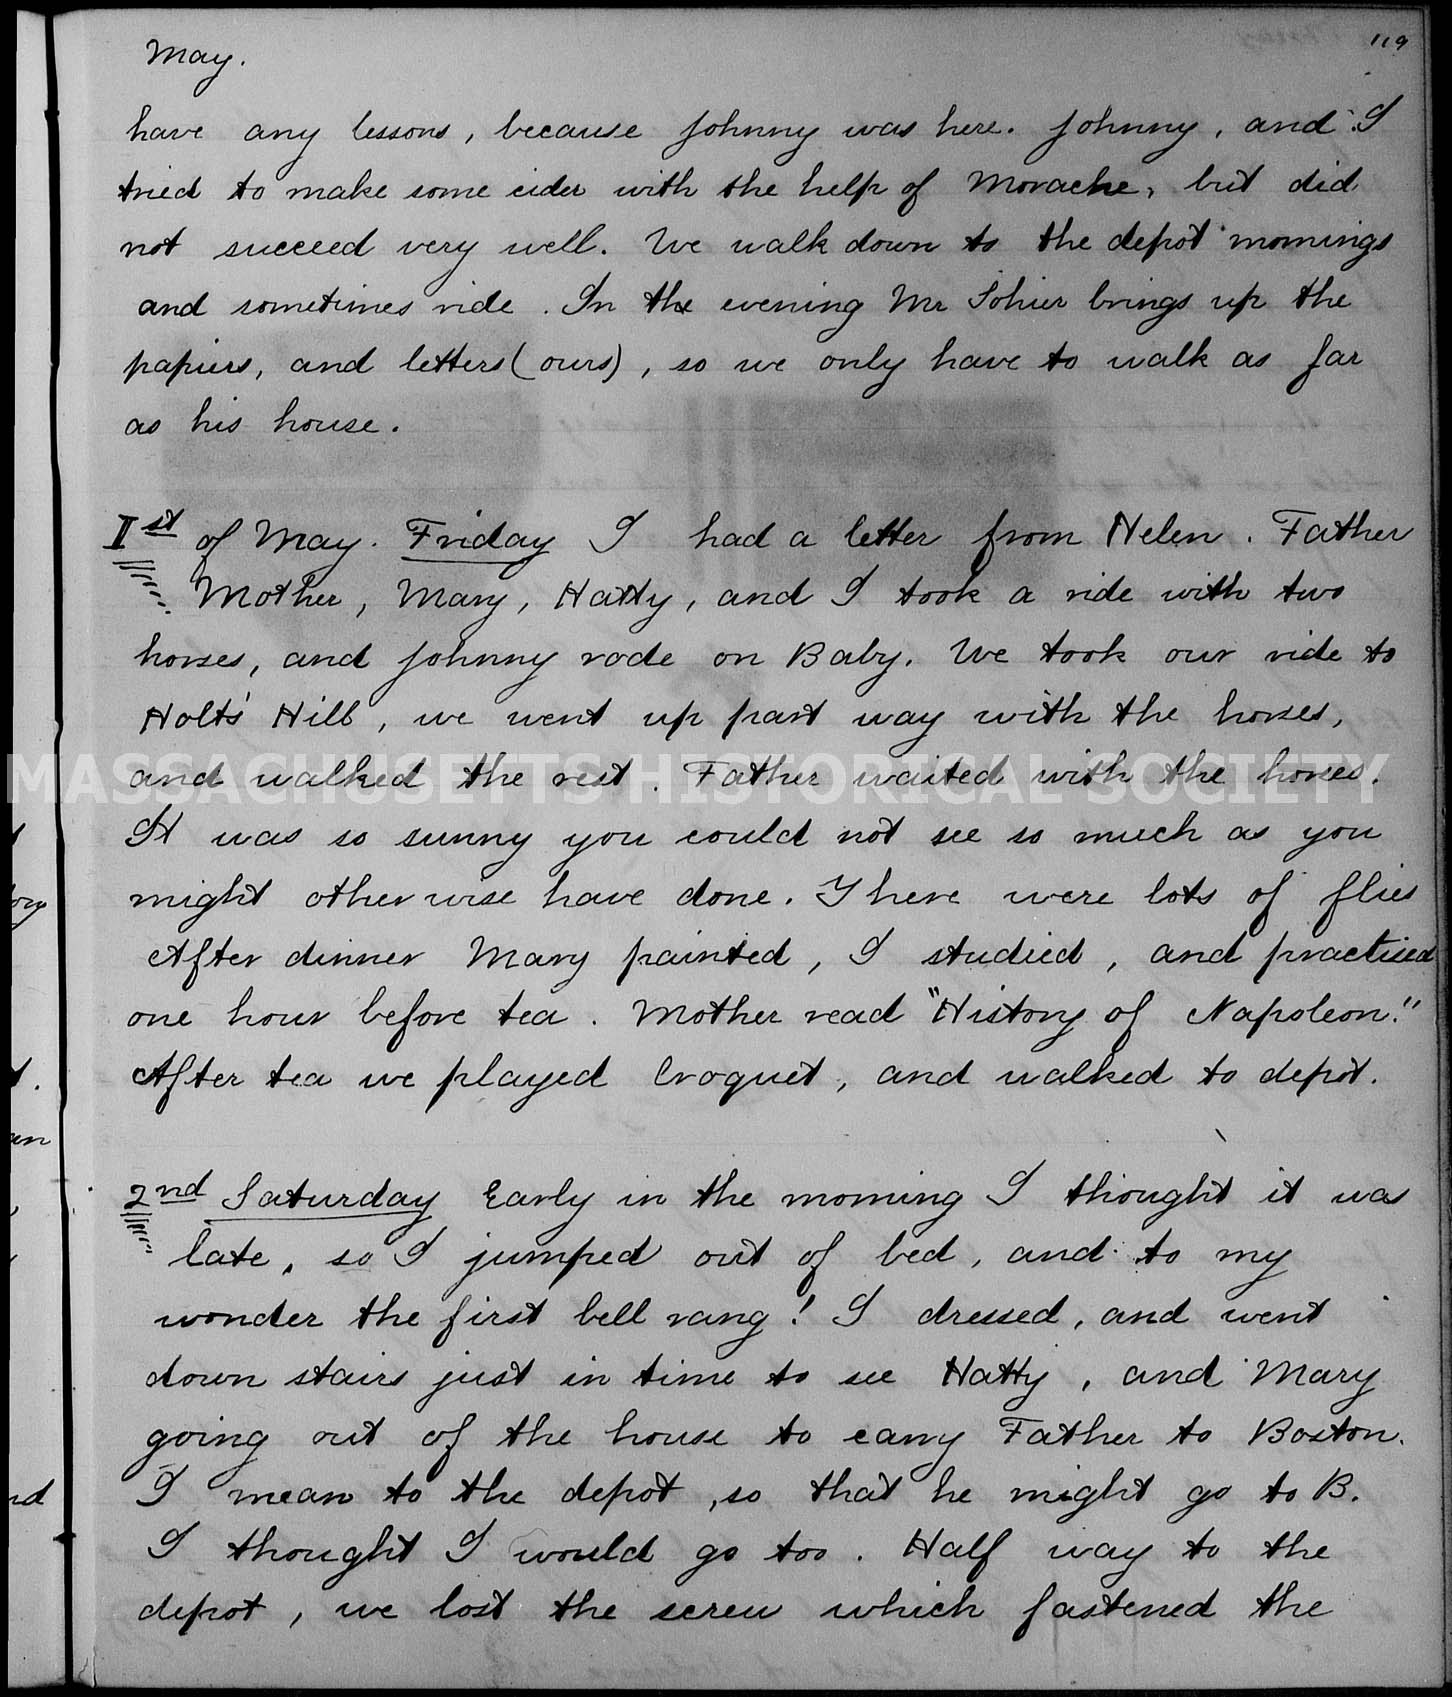 119
May.
have any lessons, because Johnny was here. Johnny, and I
tried to make some cider with the help of Morache, but did
not succeed very well. We walk down to the depot mornings
and sometimes ride. In the evening Mr Sohier brings up the
papiers, and letters (ours), so we only have to walk as far
as his house.
Ist of May. Friday I had a letter from Helen. Father
Mother, Mary, Hatty, and I took a ride with two
horses, and Johnny rode on Baby. We took our ride to
Holts' Hill, we went up part way with the horses,
and walked the rest. Father waited with the horses.
MASSACHUSETTS HISTORICAL SOCIETY
It was so sunny you could not see so much as you
might other wise have done. There were lots of flies
After dinner Mary painted, I studied, and practised
one hour before tea. Mother read "History of Napoleon."
After tea we played Croquet, and walked to depot.
2nd Saturday Early in the morning I thought it was
late, so I jumped out of bed, and to my
wonder the first bell rang! I dressed, and went
down stairs just in time to see Hatty, and Mary
going out of the house to carry Father to Boston.
I mean to the depot, so that he might go to B.
I thought I would go too. Half way to the
depot, we lost the screw which fastened the